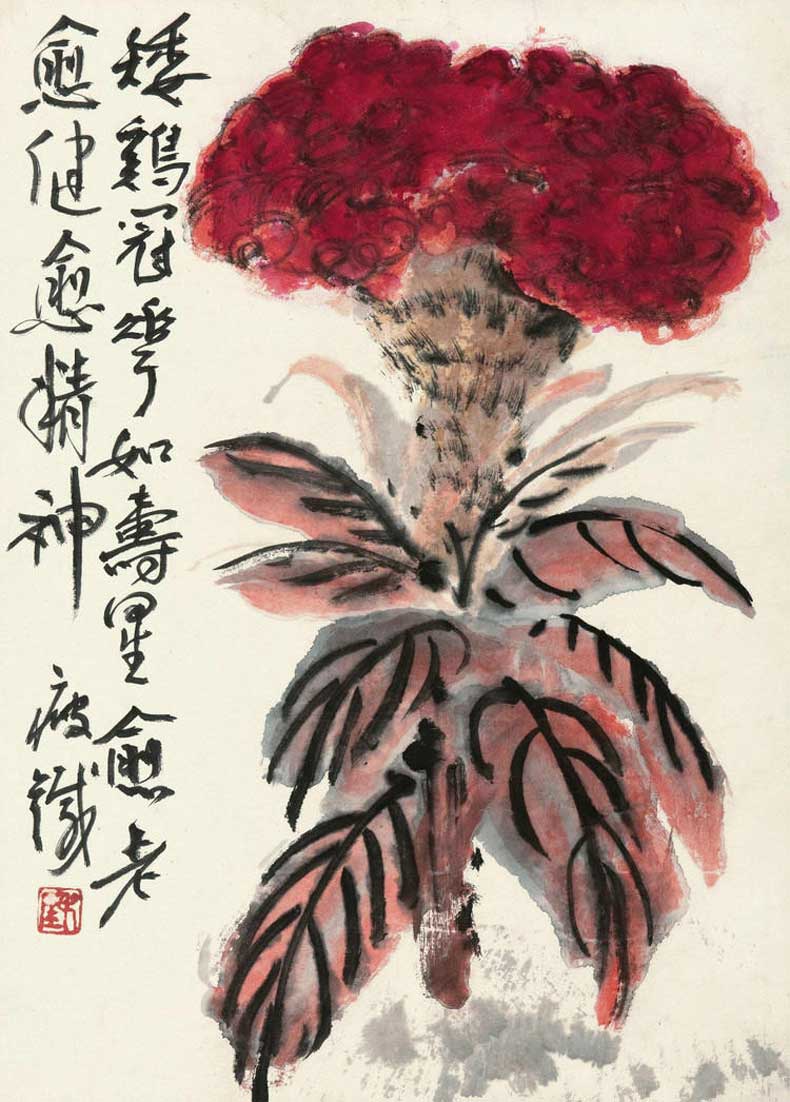 矮鷄冠華如壽星愈老
愈健愈精神
瘦鐵